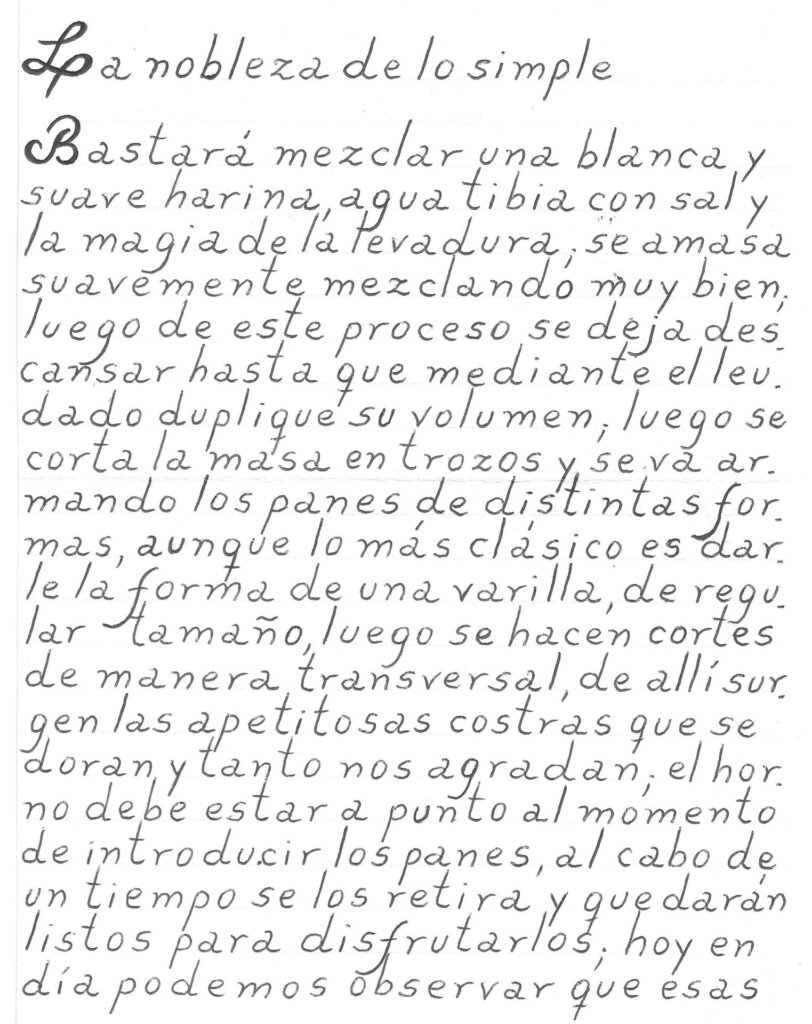 La nobleza de lo simple
Bastará mezclar una blanca y
suave harina, agua tibia con sal y
la magia de la levadura; se amasa
suavemente mezclando muy bien;
luego de este proceso se deja des.
cansar hasta que mediante el leu.
dado duplique su volumen; luego se
corta la masa en trozos y se va ar.
mando los panes de distintas for.
mas, aunque lo más clásico es dar.
le la forma de una varilla, de regu.
lar tamaño, luego se hacen cortes
de manera transversal, de allí sur.
gen las apetitosas costras que se
doran y tanto nos agradan; el hor.
no debe estar a punto al momento
de introducir los panes, al cabo de
un tiempo se los retira y quedarán
listos para disfrutarlos; hoy en
día podemos observar que esas